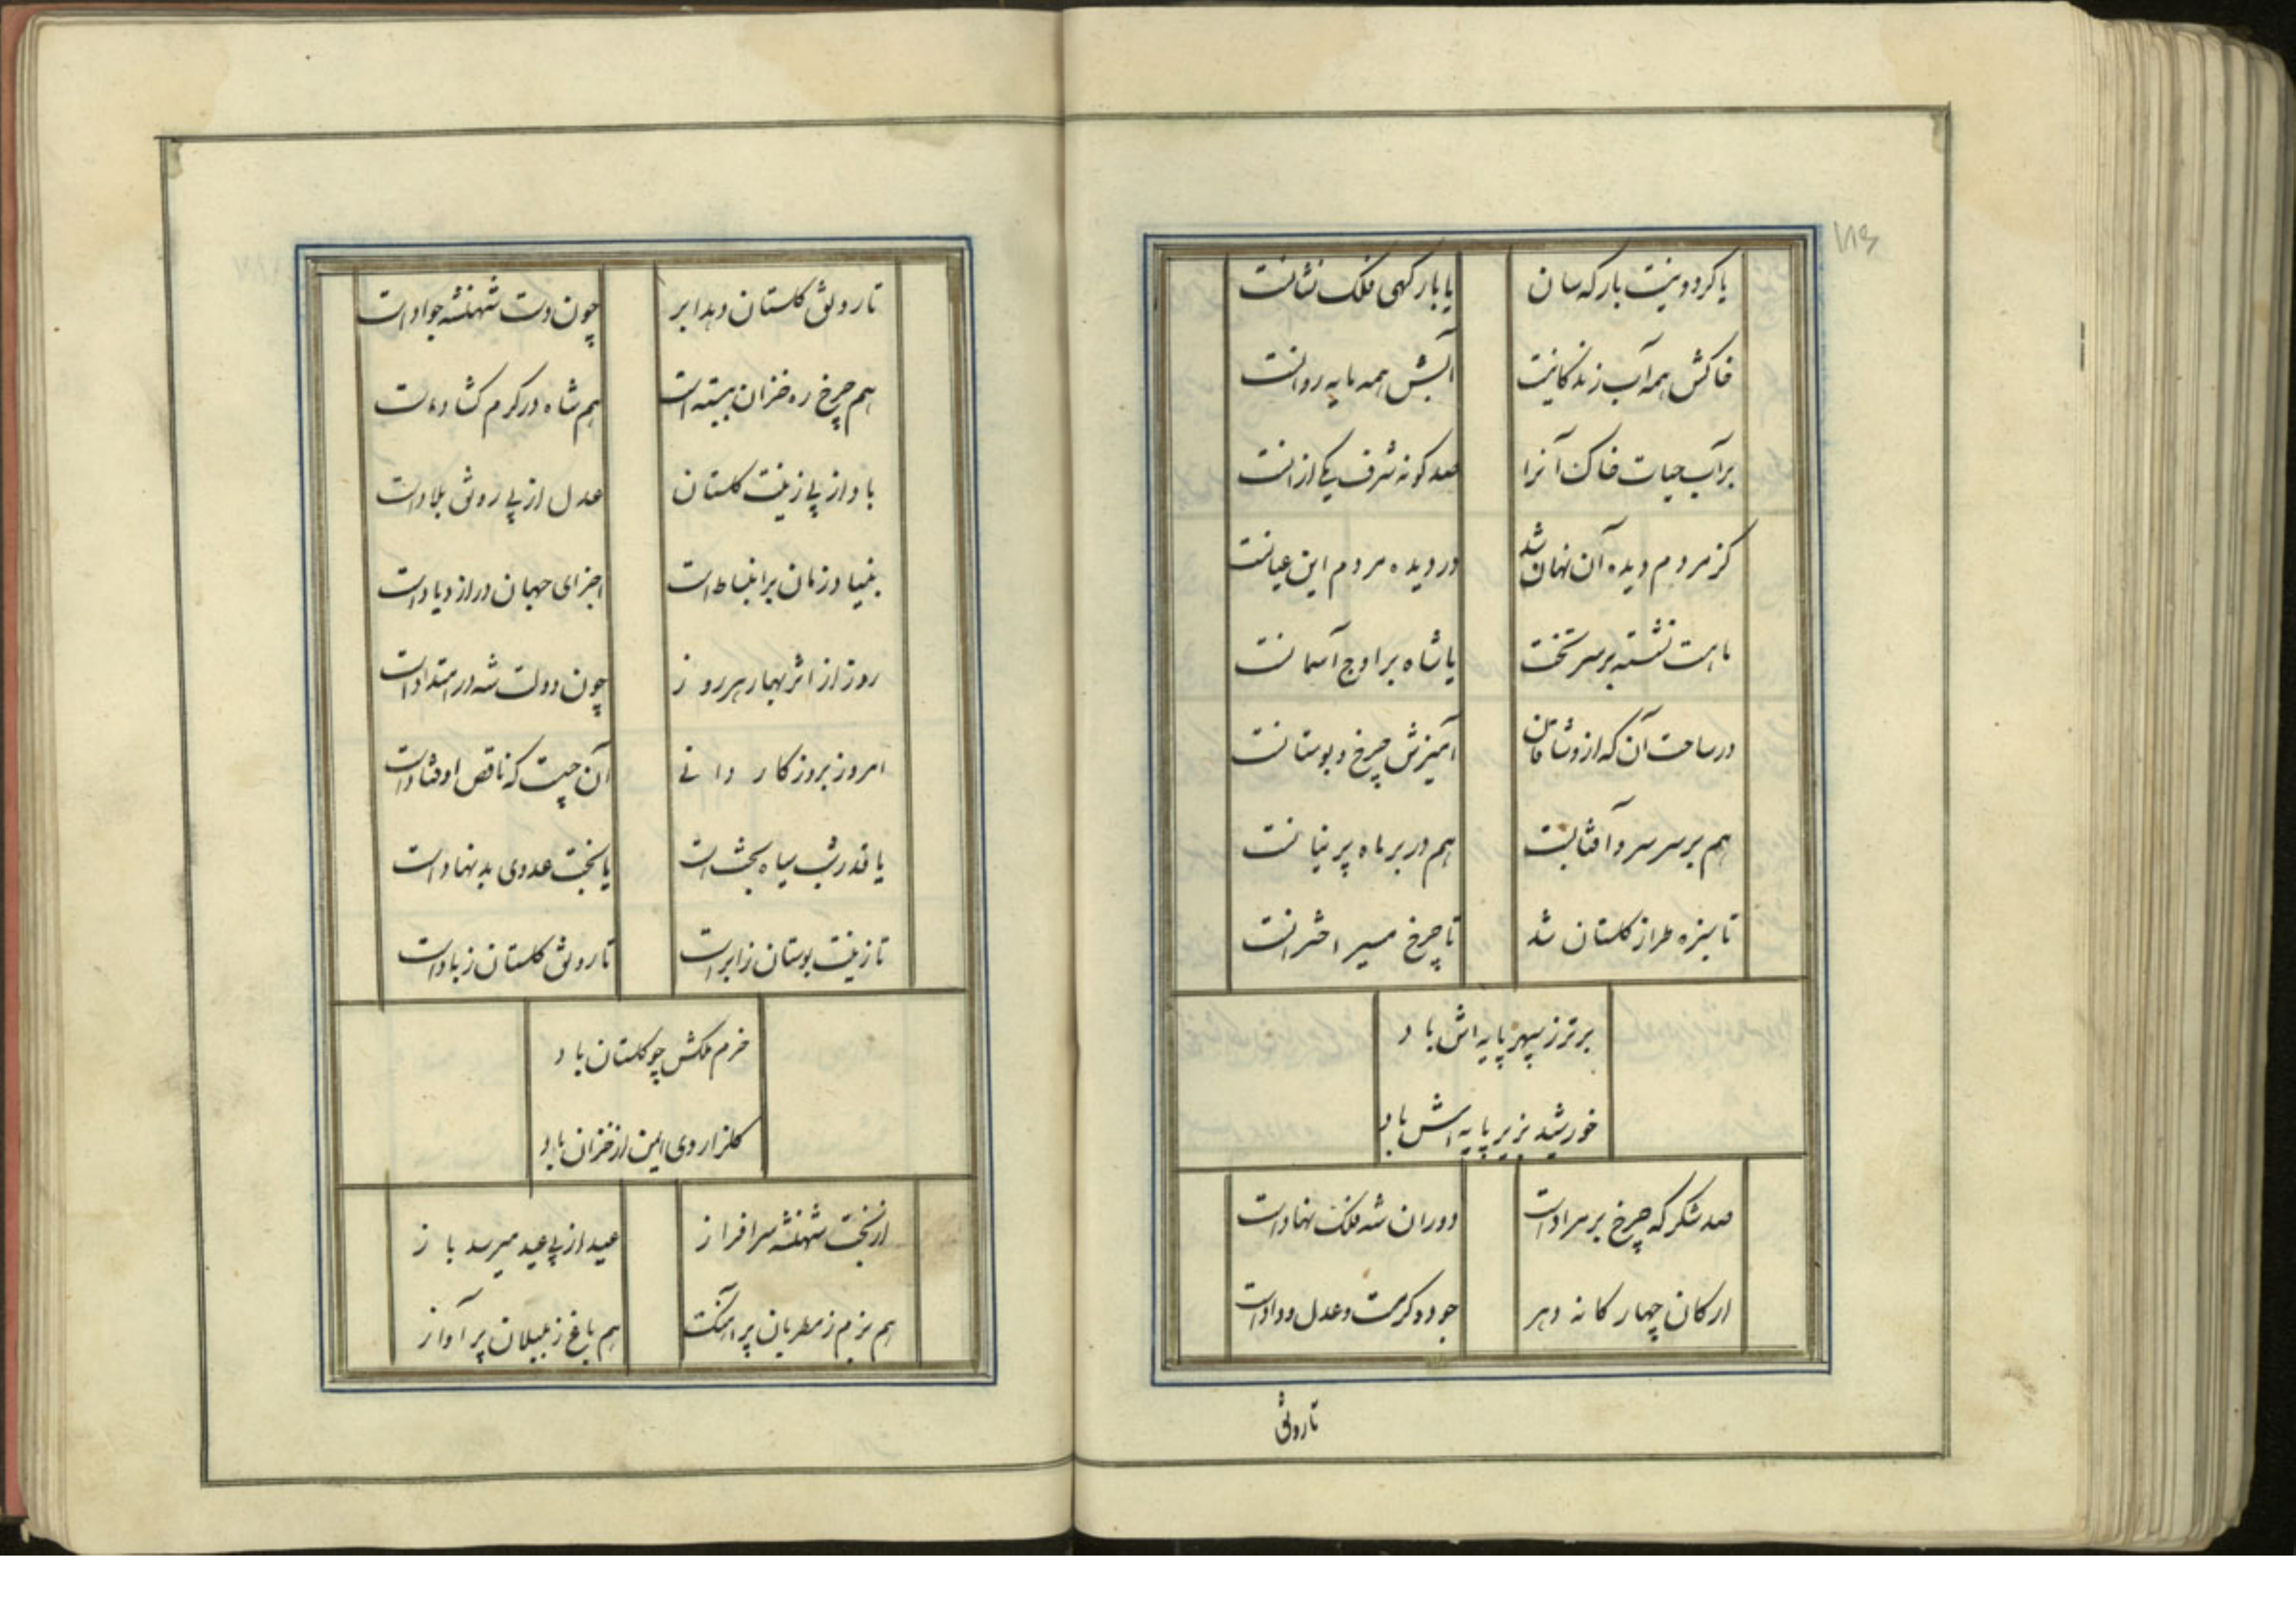 یا گردونیست بارگه سان
یا بارگهی فلک نشانست
خاکش همه آب زندگانیست
آبش همه مایه روانست
بر آب حیات خاک آنرا
صد گونه شرف یکی از انست
کز مردم دیده آن نهان شد
در دیده مردم این عیانست
ماهست نشسته بر سر تخت
یا شاه بر اوج آسمانست
در ساحت آن که از وشاقان
آمیزش چرخ و بوستانست
هم بر سر سرو آفتابست
هم در بر ماه پرنیانست
تا سبزه طراز گلستان شد
تا چرخ مسیر اخترانست
برتر ز سپهر پایه اش باد
خورشید بزیر پایه اش باد
صد شکر که چرخ بر مراد است
دوران شه فلک نهاد است
ارکان چهار گانه دهر
جود و کرمست و عدل و داد است
تا رونق
تا رونق گلستان دهد ابر
چون دست شهنشه جواد است
هم چرخ ره خزان ببسته است
هم شاه در کرم گشاده است
باد از پی زینت گلستان
عدل از پی رونق بلاد است
بنیاد زمان بر انبساط است
اجزای جهان در ازدیاد است
روز از اثر بهار هر روز
چون دولت شه در امتداد است
امروز بروزگار دانی
آن چیست که ناقص اوفتاد است
یا قدر شب سیاه بخت است
یا بخت عدوی بد نهاد است
تا زینت بوستان ز ابر است
تا رونق گلستان ز باد است
خرم ملکش چو گلستان باد
گلزار وی ایمن از خزان باد
از بخت شهنشه سرافراز
عید از پی عید میرسد باز
هم بزم ز مطربان پر آهنگ
هم باغ ز بلبلان پر آواز